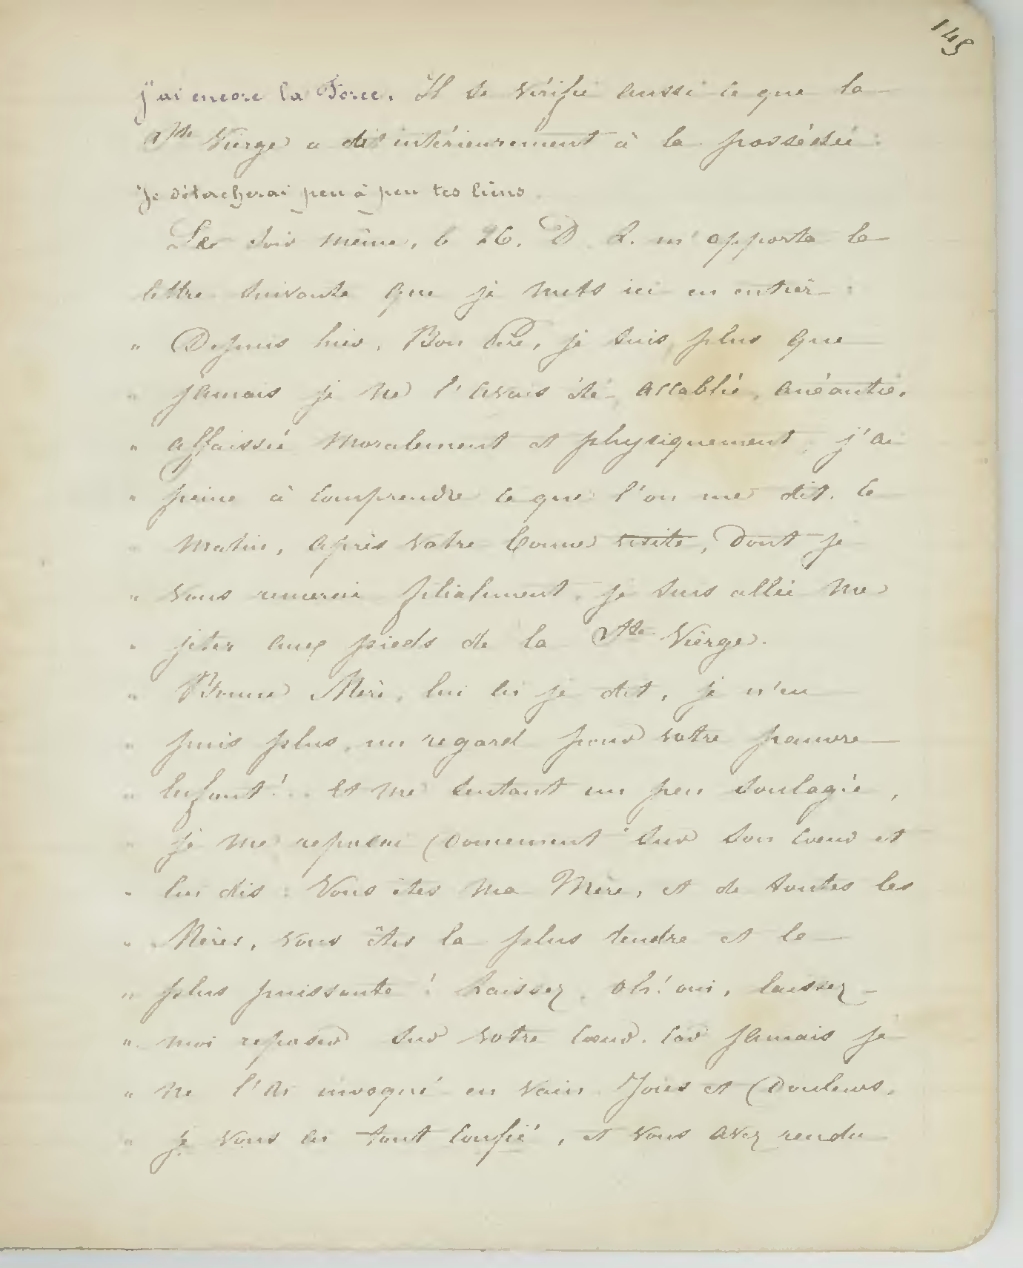 149
j'ai encore la Force. Il se vérifie aussi ce que la
Ste Vierge a dit intérieurement à la possédée :
"Je détacherai peu à peu tes liens.
Le soir même, le 26. D. L. m'apporta la
lettre suivante que je mets ici en entier :
" Depuis hier, Bon Père, je suis plus que
" jamais je ne l'avais été, accablée, anéantie,
" affaissée moralement et physiquement, j'ai
" peine à comprendre ce que l'on me dit. Ce
" matin, après votre bonne visite, dont je
" vous remercie filialement, je suis allée me
" jeter aux pieds de la Ste Vierge.
" Bonne Mère, lui ai je dit, je n'en
" puis plus, un regard pour votre pauvre
" Enfant!.. Et me sentant un peu soulagée,
" je me reposai doucement sur son cœur et
" lui dis : Vous êtes ma Mère, et de toutes les
" Mères, vous êtes la plus tendre et la
" plus puissante ! Laissez, oh! oui, laissez-
" moi reposer sur votre cœur. Car jamais je
" ne l'ai invoqué en vain. Joies et Douleurs,
" je vous ai tout confié, et vous avez rendu